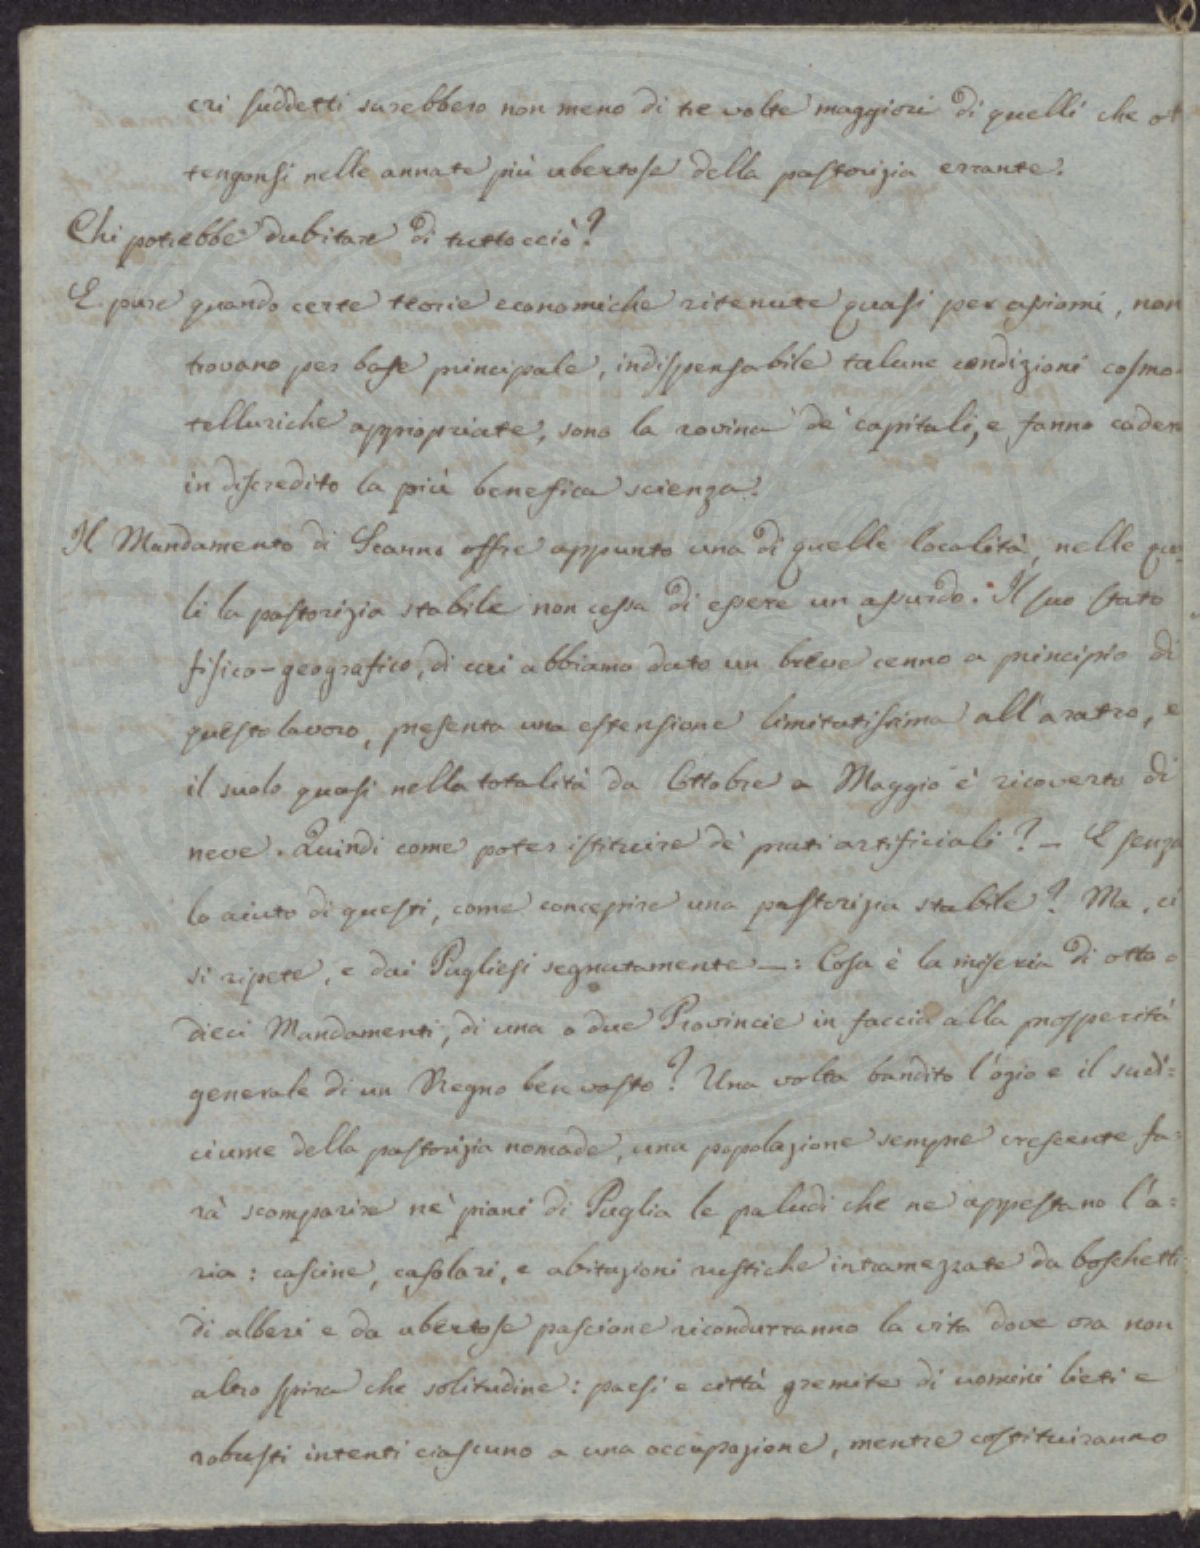 cri suddetti sarebbero non meno di tre volte maggiori di quelli che ot
tengonsi nelle annate più ubertose della pastorizia errante.
Chi potrebbe dubitare di tuttocciò?
E pure quando certe teorie economiche ritenute quasi per assiomi, non
trovano per base principale, indispensabile talune condizioni cosmo-
telluriche appropriate, sono la rovina de' capitali, e fanno cadere
in discredito la più benefica scienza.
Il Mandamento di Scanno offre appunto una di quelle località, nelle qua-
li la pastorizia stabile non cessa di essere un assurdo. Il suo stato
fisico-geografico, di cui abbiamo dato un breve cenno a principio di
questo lavoro, presenta una estensione limitatissima all'aratro, e
il suolo quasi nella totalità da Ottobre a Maggio è ricoverto di
neve. Quindi come poter istituire de' prati artificiali? – E senza
lo aiuto di questi, come concepire una pastorizia stabile? Ma, ci
si ripete, e dai Pugliesi segnatamente –: Cosa è la miseria di otto o
dieci Mandamenti, di una o due Provincie in faccia alla prosperità
generale di un Regno ben vasto? Una volta bandito l'ozio e il sudi=
ciume della pastorizia nomade, una popolazione sempre crescente fa=
rà scomparire ne' piani di Puglia le paludi che ne appestano l'a=
ria: cascine, casolari, e abitazioni rustiche intramezzate da boschetti
di alberi e da ubertose pascione ricondurranno la vita dove ora non
altro spira che solitudine: paesi e città gremite di uomini lieti e
robusti intenti ciascuno a una occupazione, mentre costituiranno